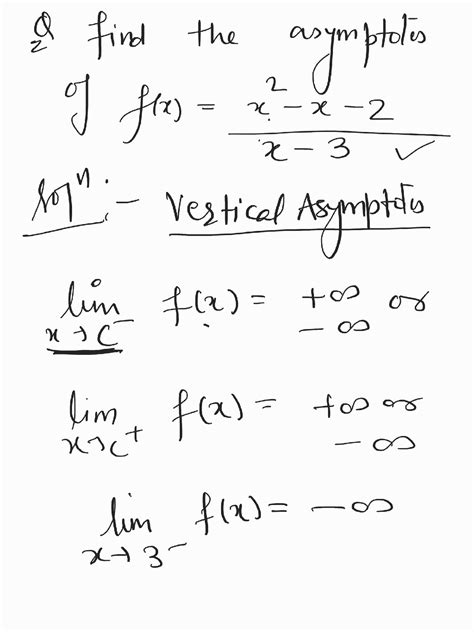 Q2 find the asymptotes
of f(x) = x² - x - 2
x - 3 ✓
Solⁿ :- Vertical Asymptotes
lim f(x) = +∞ or
x→c⁻ -∞
lim f(x) = +∞ or
x→c⁺ -∞
lim f(x) = -∞
x→3⁻